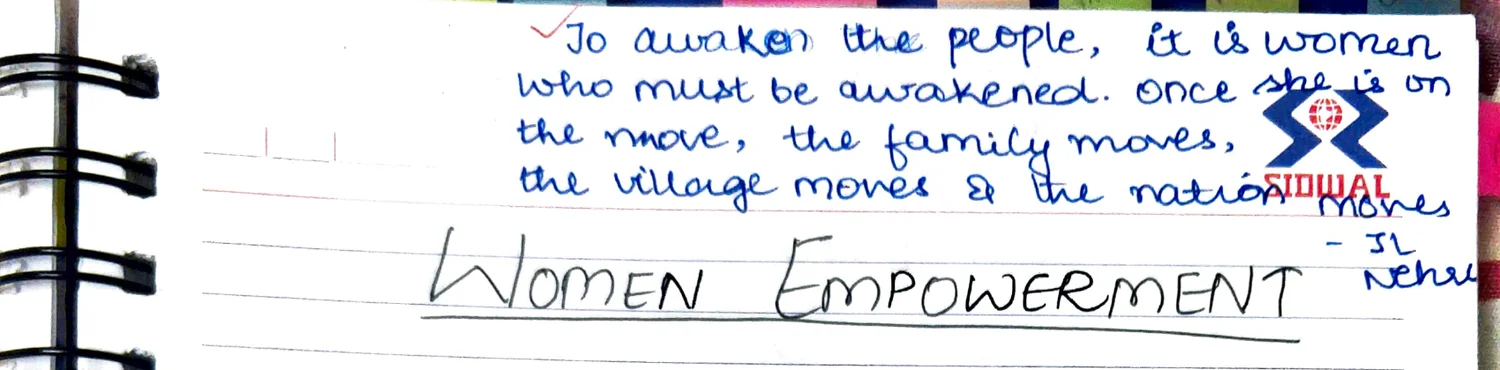 To awaken the people, it is women
who must be awakened. once she is on
the move, the family moves,
the village moves & the nation moves
SIDWAL
- JL
Nehru
WOMEN EMPOWERMENT